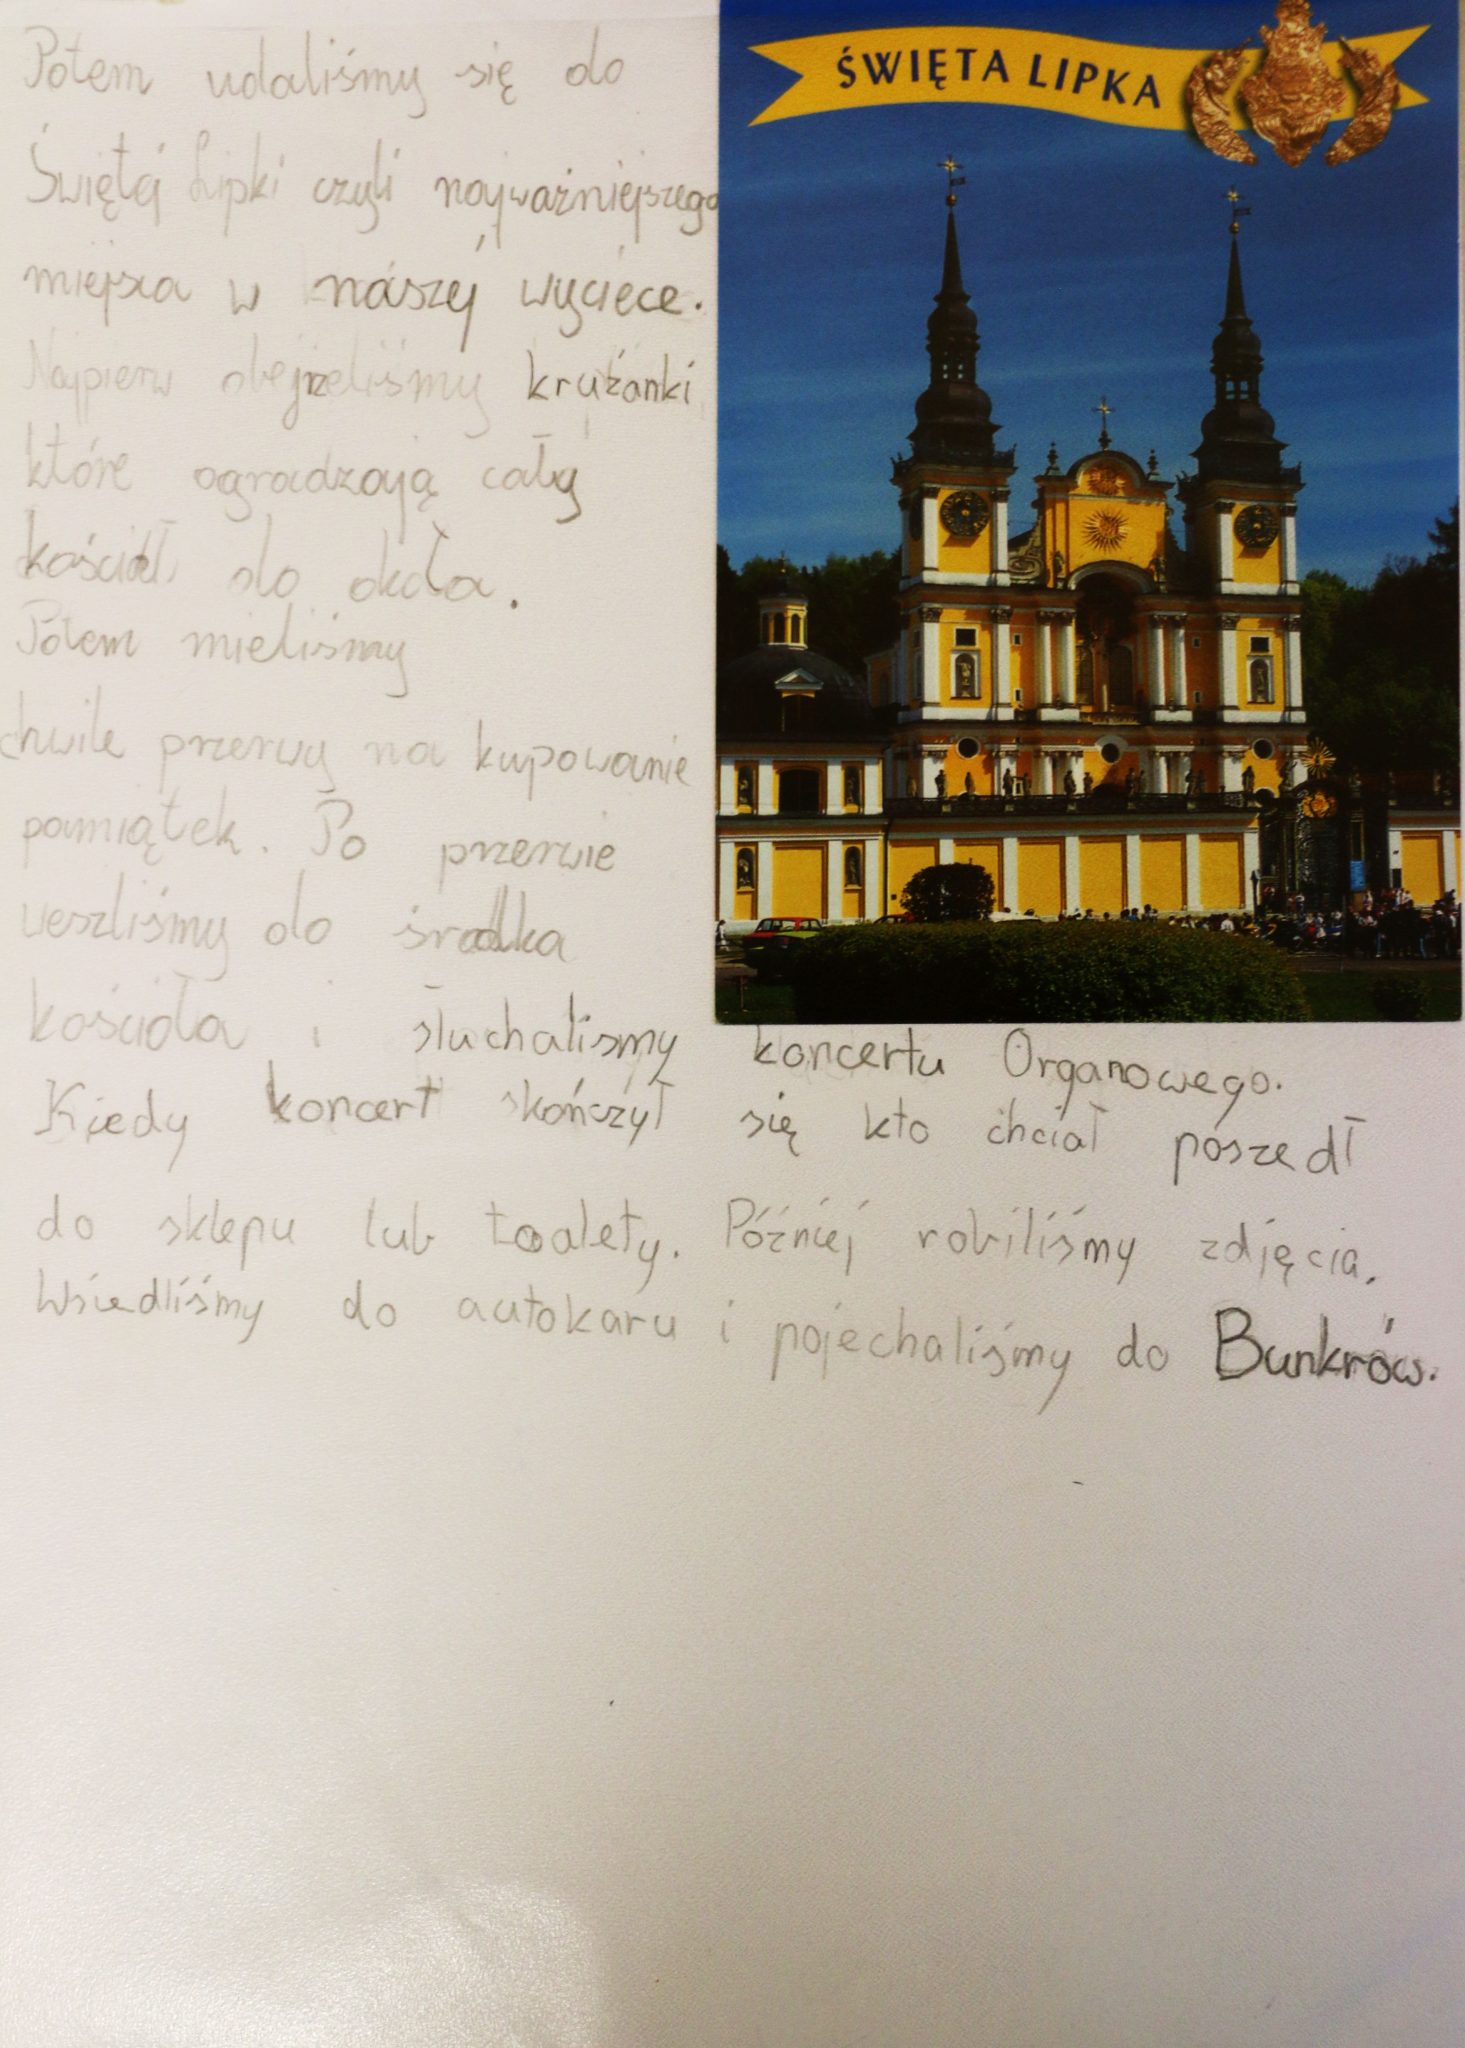 Potem udaliśmy się do
Świętej Lipki czyli najważniejszego
miejsca w naszej wyciece.
Najpierw obejrzeliśmy krużanki
które ogradzają cały
kościół do okoła.
Potem mieliśmy
chwile przerwy na kupowanie
pamiątek. Po przerwie
weszliśmy do środka
kościoła i słuchalismy koncertu Organowego.
Kiedy koncert skończył się kto chciał poszedł
do sklepu lub toalety. Później robiliśmy zdjęcia.
Wsiedliśmy do autokaru i pojechaliśmy do Bunkrów.
ŚWIĘTA LIPKA